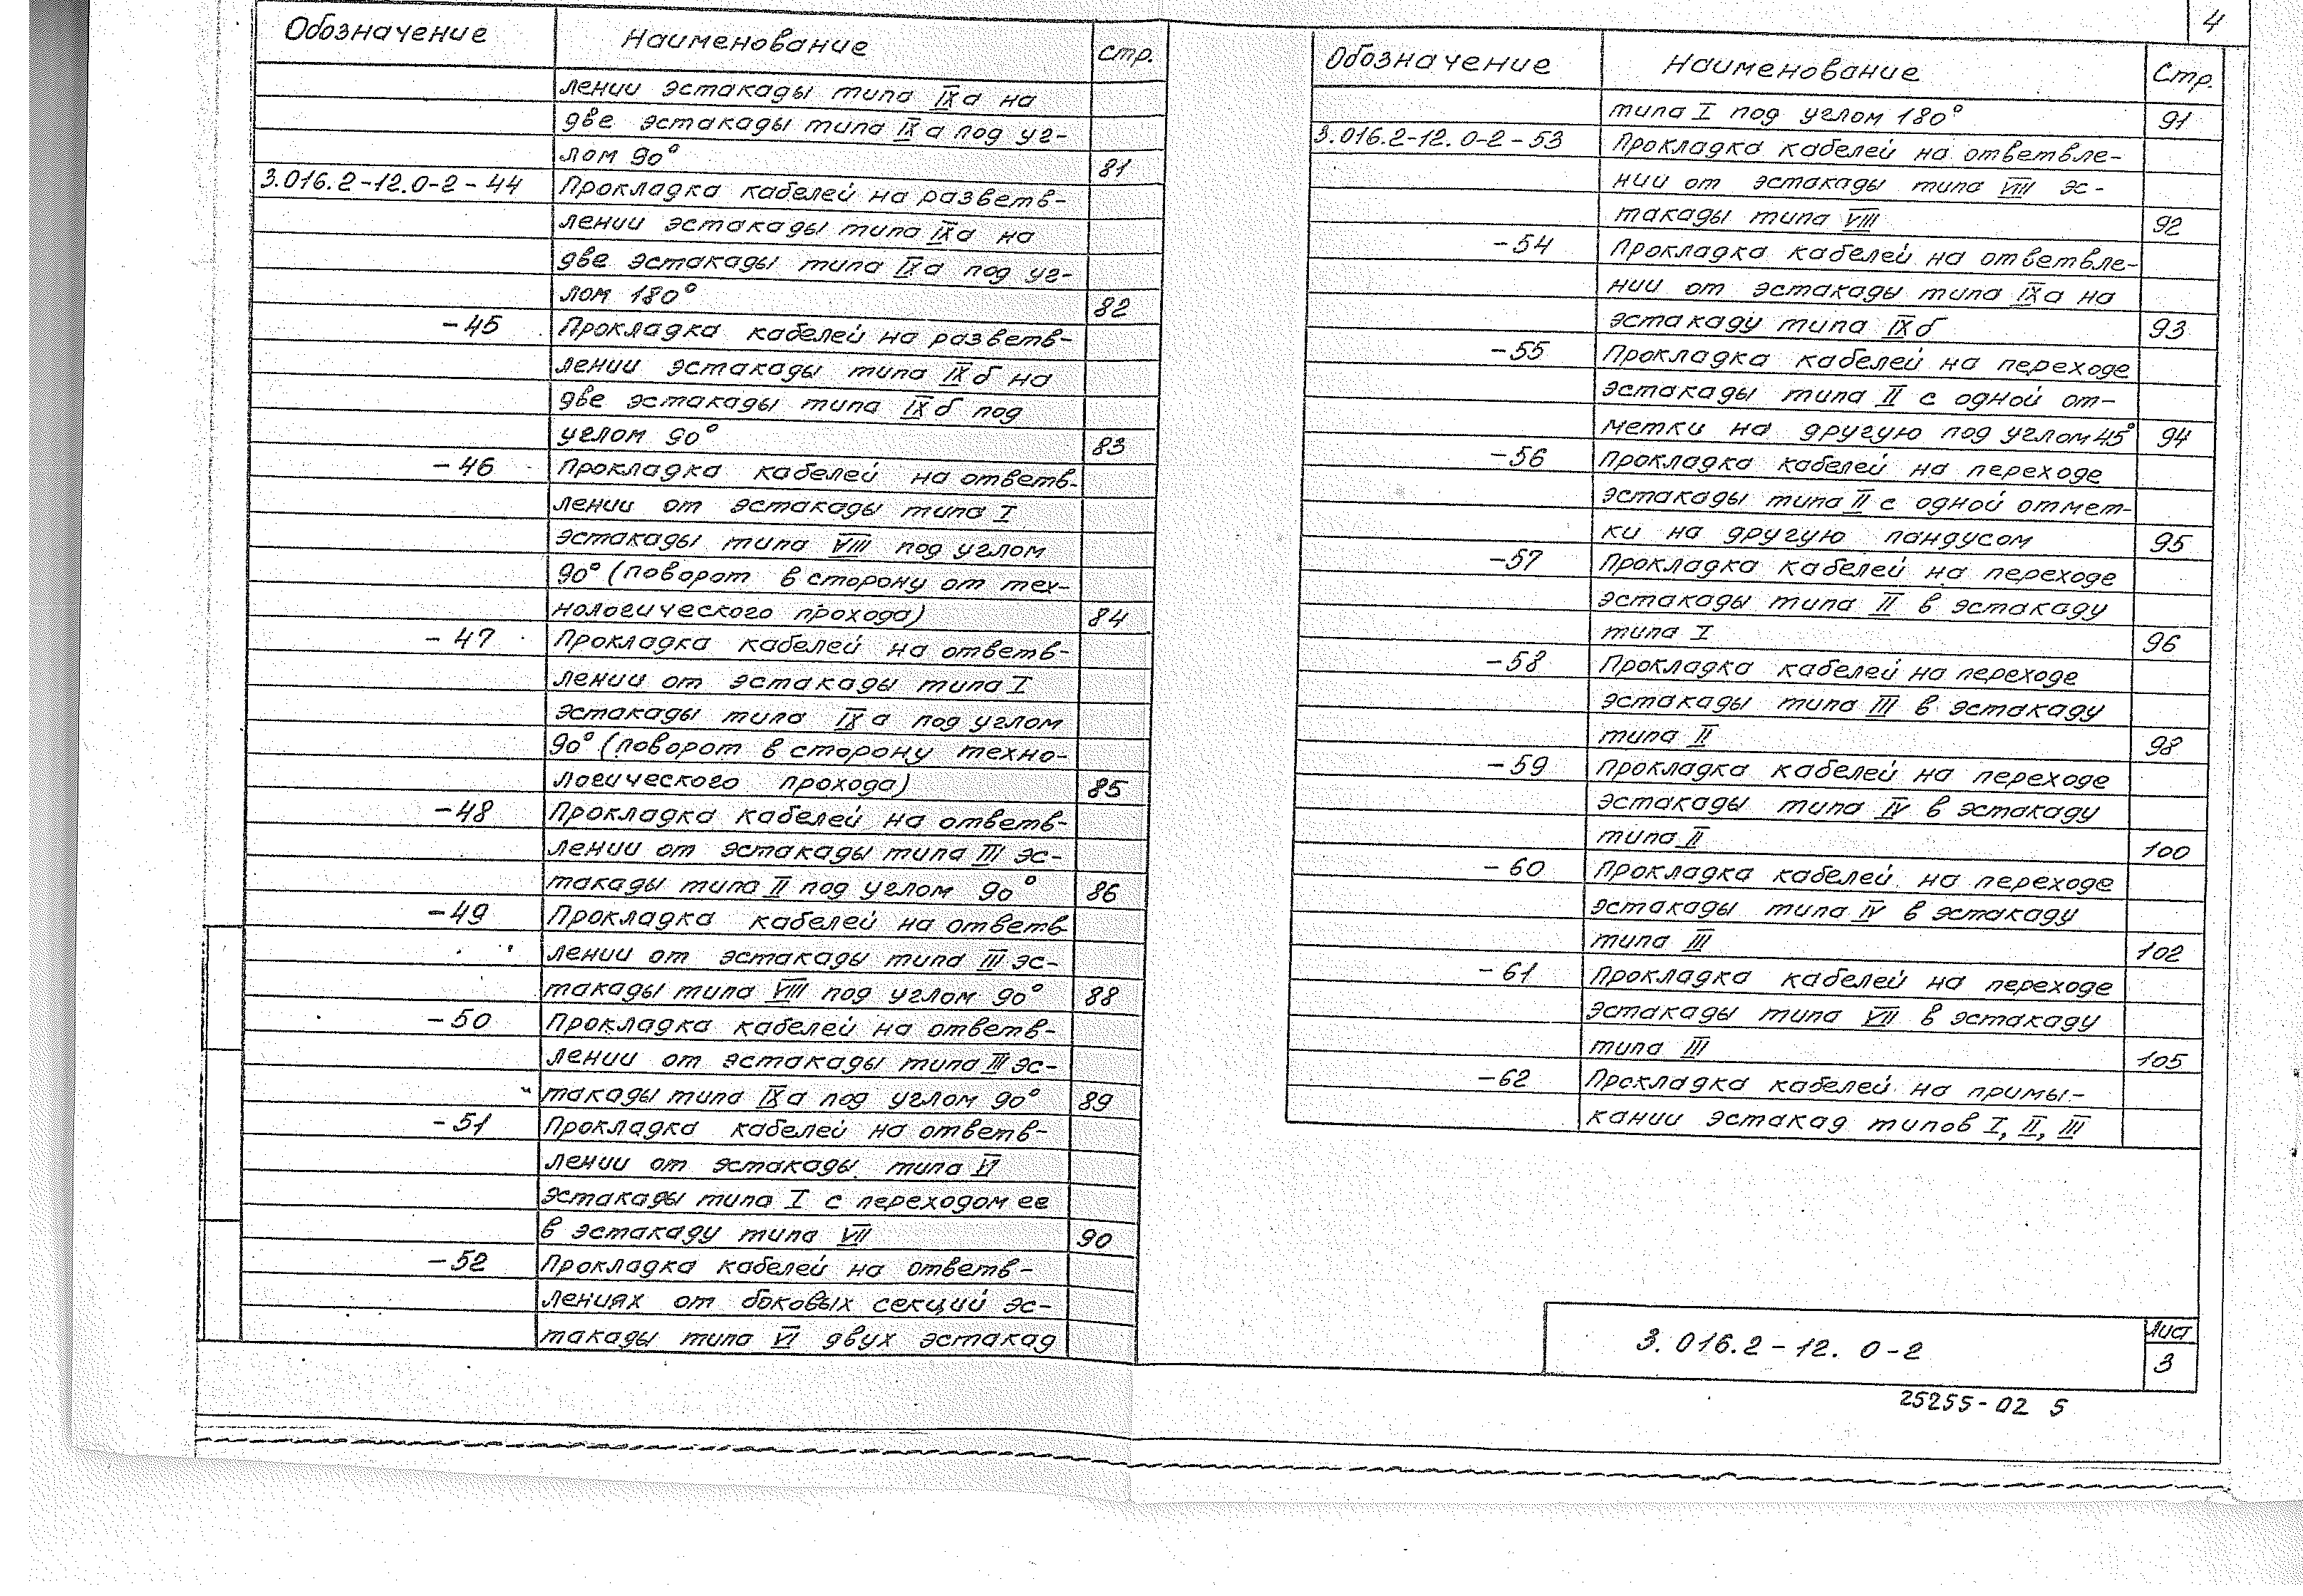 Обозначение Наименование Стр.
лении эстакады типа IXа на
две эстакады типа IXа под уг-
лом 90° 81
3.016.2-12.0-2-44 Прокладка кабелей на разветв-
лении эстакады типа IXа на
две эстакады типа IXа под уг-
лом 180° 82
-45 Прокладка кабелей на разветв-
лении эстакады типа IXб на
две эстакады типа IXб под
углом 90° 83
-46 Прокладка кабелей на ответв-
лении от эстакады типа I
эстакады типа VIII под углом
90° (поворот в сторону от тех-
нологического прохода) 84
-47 Прокладка кабелей на ответв-
лении от эстакады типа I
эстакады типа IXа под углом
90° (поворот в сторону техно-
логического прохода) 85
-48 Прокладка кабелей на ответв-
лении от эстакады типа III эс-
такады типа II под углом 90° 86
-49 Прокладка кабелей на ответв
лении от эстакады типа III эс-
такады типа VIII под углом 90° 88
-50 Прокладка кабелей на ответв-
лении от эстакады типа III эс-
такады типа IXа под углом 90° 89
-51 Прокладка кабелей на ответв-
лении от эстакады типа VI
эстакады типа I с переходом ее
в эстакаду типа VII 90
-52 Прокладка кабелей на ответв-
лениях от боковых секций эс-
такады типа VI двух эстакад
4
Обозначение Наименование Стр.
типа I под углом 180° 91
3.016.2-12.0-2-53 Прокладка кабелей на ответвле-
нии от эстакады типа VIII эс-
такады типа VIII 92
-54 Прокладка кабелей на ответвле-
нии от эстакады типа IXа на
эстакаду типа IXб 93
-55 Прокладка кабелей на переходе
эстакады типа II с одной от-
метки на другую под углом 45° 94
-56 Прокладка кабелей на переходе
эстакады типа II с одной отмет-
ки на другую пандусом 95
-57 Прокладка кабелей на переходе
эстакады типа II в эстакаду
типа I 96
-58 Прокладка кабелей на переходе
эстакады типа III в эстакаду
типа II 98
-59 Прокладка кабелей на переходе
эстакады типа IV в эстакаду
типа II 100
-60 Прокладка кабелей на переходе
эстакады типа IV в эстакаду
типа III 102
-61 Прокладка кабелей на переходе
эстакады типа VII в эстакаду
типа III 105
-62 Прокладка кабелей на примы-
кании эстакад типов I, II, III
3.016.2-12. 0-2
Лист
3
25255-02 5